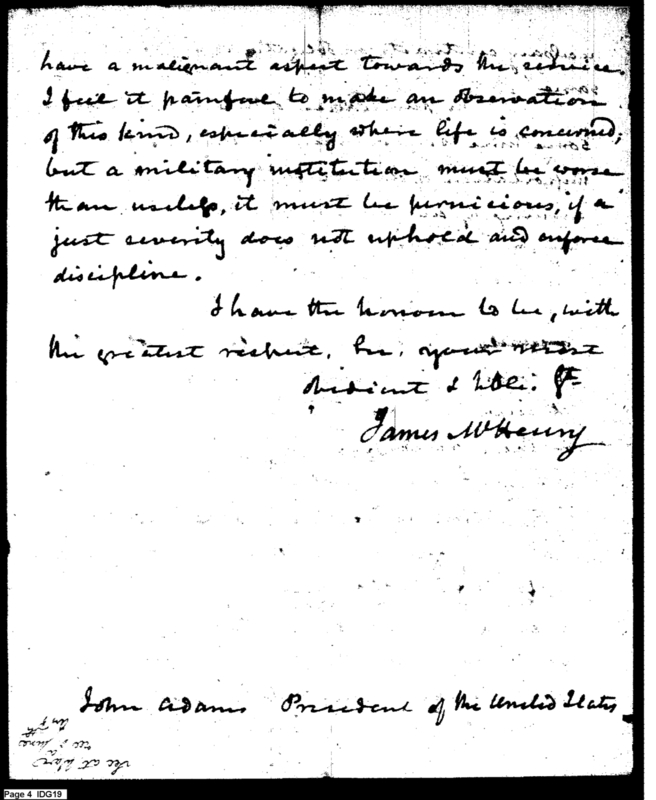 have a malignant aspect towards the service.
I feel it painful to make an observation
of this kind, especially where life is concerned;
but a military institution must be worse
than useless, it must be pernicious, if a
just severity does not uphold and enforce
discipline.
I have the honour to be, with
the greatest respect, Sir, your most
obedient & hble: St
James McHenry
John Adams President of the United States
Page 4 IDG19